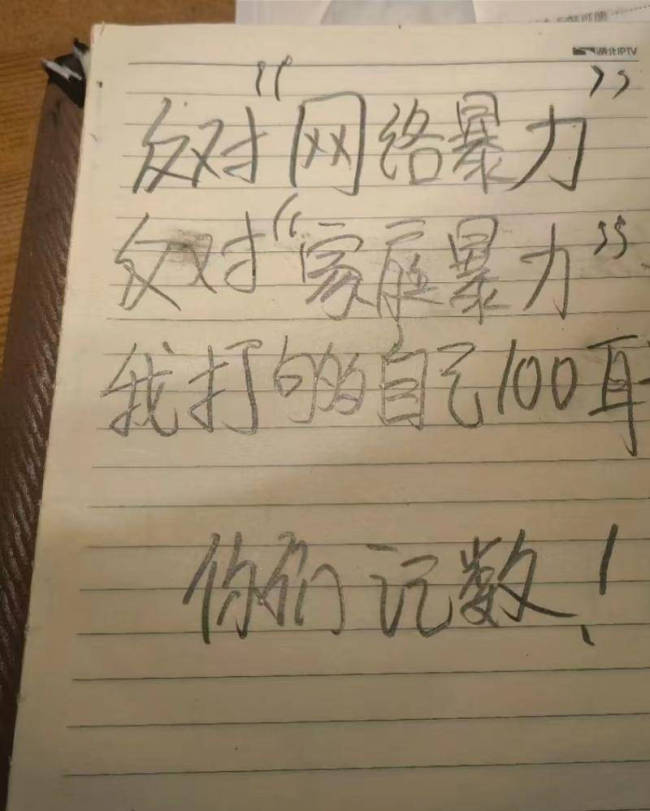 湖北IPTV
反对“网络暴力”
反对“家庭暴力”
我打够自己100耳
你们记数！